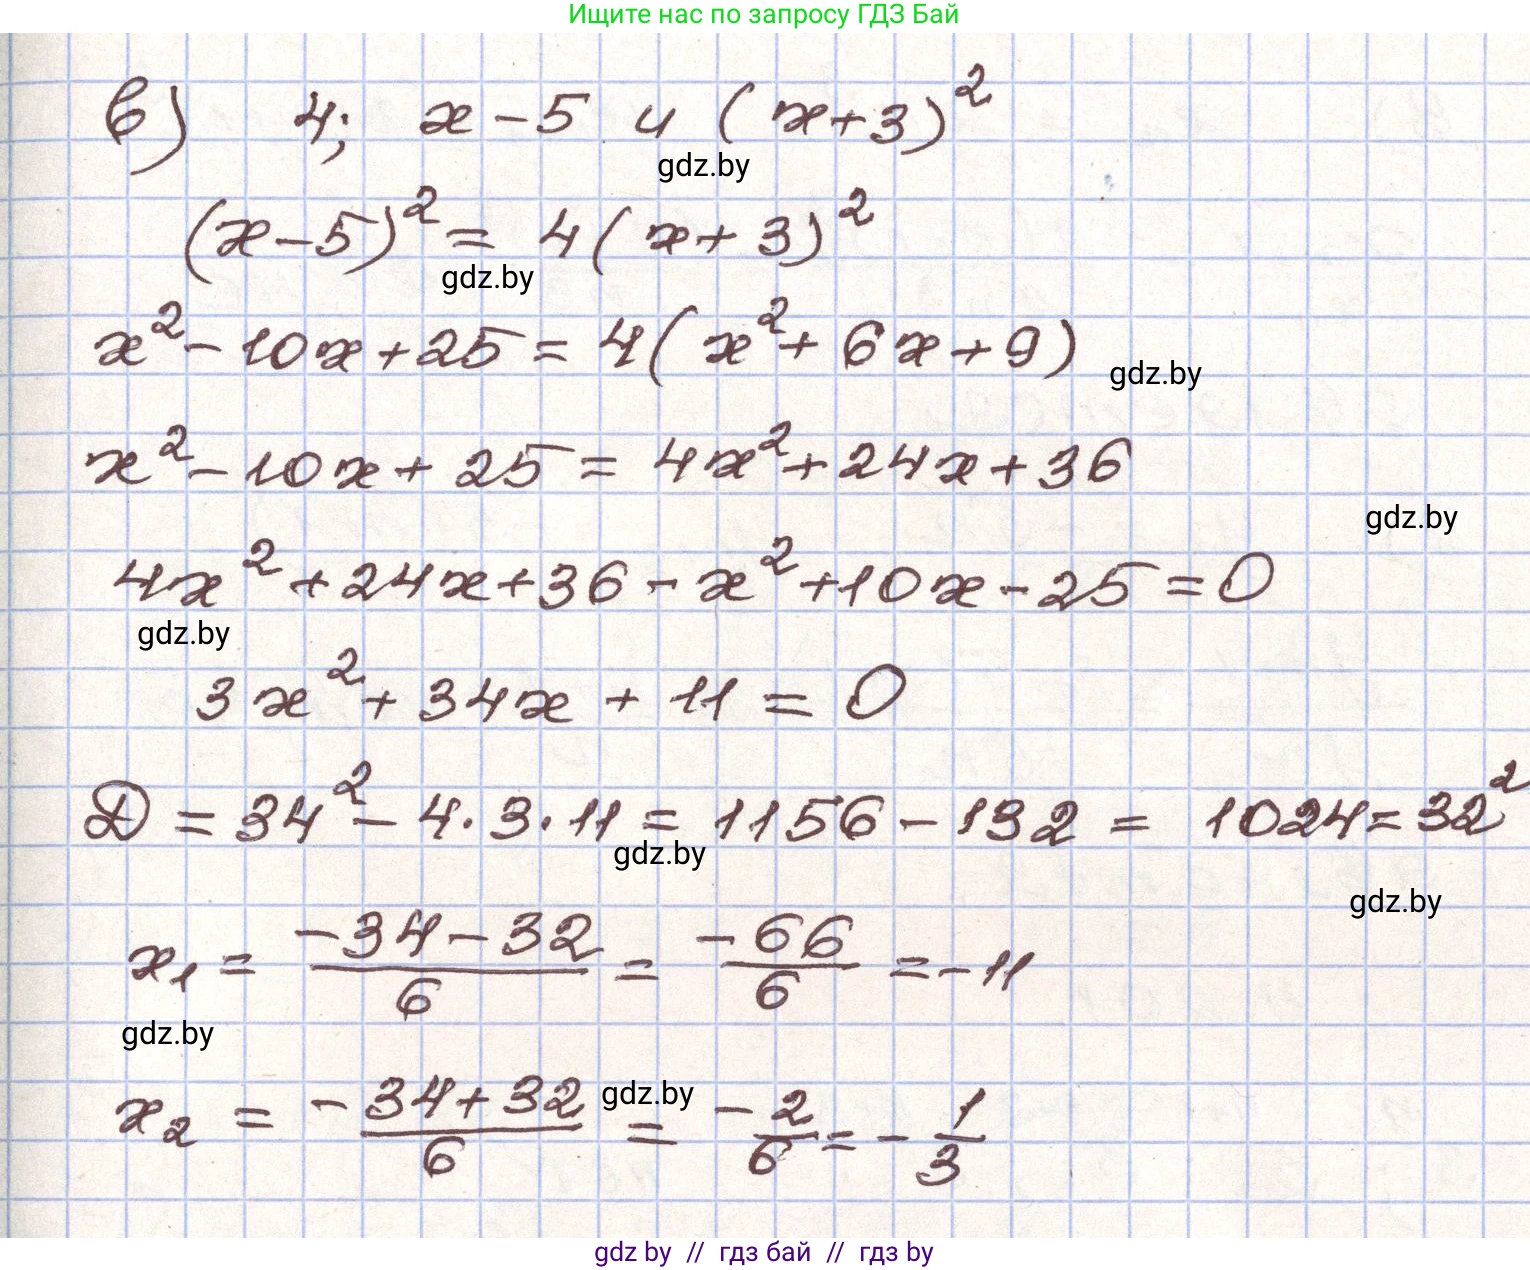 Ищите нас по запросу ГДЗ Бай
в) 4; x - 5 и (x + 3)²
gdz.by
(x - 5)² = 4(x + 3)²
gdz.by
x² - 10x + 25 = 4(x² + 6x + 9)
gdz.by
x² - 10x + 25 = 4x² + 24x + 36
gdz.by
4x² + 24x + 36 - x² + 10x - 25 = 0
gdz.by
3x² + 34x + 11 = 0
D = 34² - 4·3·11 = 1156 - 132 = 1024 = 32²
gdz.by
gdz.by
x₁ = (-34 - 32)/6 = -66/6 = -11
gdz.by
gdz.by
x₂ = (-34 + 32)/6 = -2/6 = -1/3
gdz by // гдз бай // гдз by